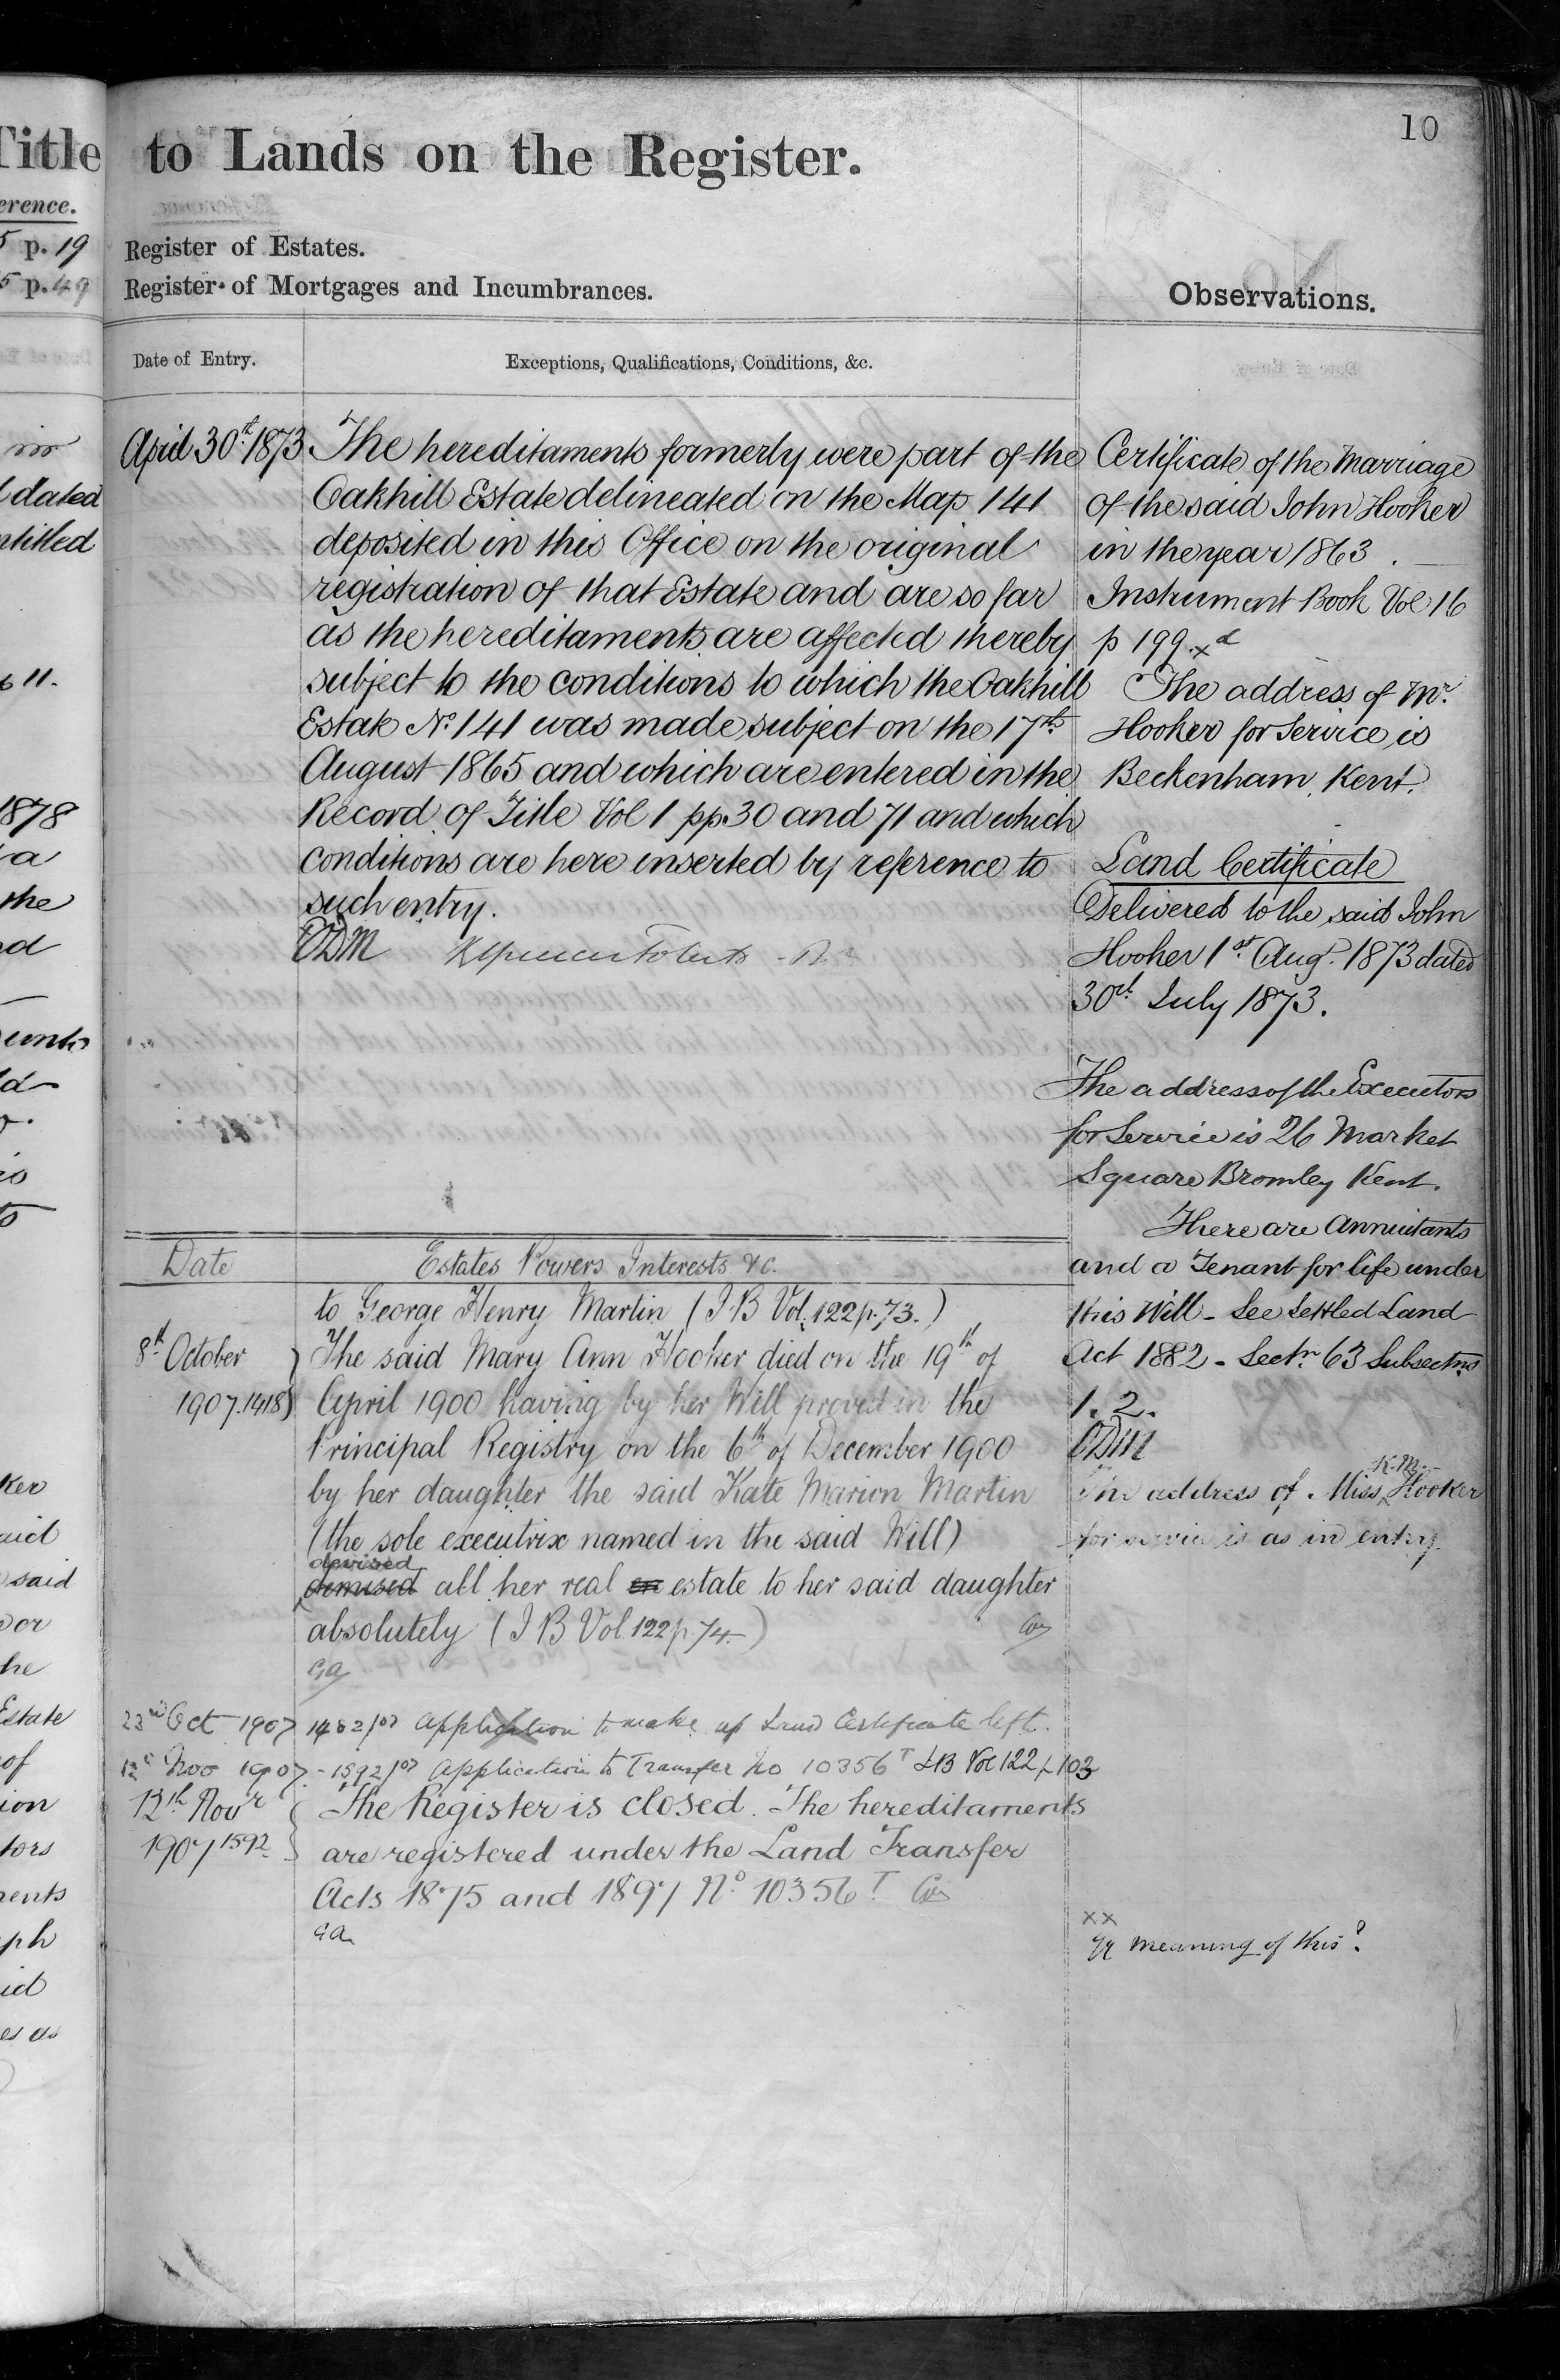 10
Title to Lands on the Register.
erence.
5 p. 19 Register of Estates.
5 p. 49 Register of Mortgages and Incumbrances.
Observations.
Date of Entry.
Exceptions, Qualifications, Conditions, &c.
April 30th 1873
The hereditaments formerly were part of the
Oakhill Estate delineated on the Map 141
deposited in this Office on the original
registration of that Estate and are so far
as the hereditaments are affected thereby
subject to the conditions to which the Oakhill
Estate No. 141 was made subject on the 17th
August 1865 and which are entered in the
Record of Title Vol 1 pp. 30 and 71 and which
conditions are here inserted by reference to
such entry.
Certificate of the Marriage
of the said John Hooker
in the year 1863.
Instrument Book Vol 16
p 199.
The address of Mr.
Hooker for Service is
Beckenham, Kent.
Land Certificate
Delivered to the said John
Hooker 1st Augt. 1873 dated
30th July 1873.
The address of the Executors
for Service is 26 Market
Square Bromley Kent.
There are Annuitants
and a Tenant for life under
this Will - See Settled Land
Act 1882 - Sectn. 63 Subsectns
1. 2.
K.M.
The address of Miss Hooker
for service is as in entry.
Date
Estates Powers Interests &c.
to George Henry Martin (I B Vol. 122 p. 73.)
8th October
1907. 1418
The said Mary Ann Hooker died on the 19th of
April 1900 having by her Will proved in the
Principal Registry on the 6th of December 1900
by her daughter the said Kate Marion Martin
(the sole executrix named in the said Will)
devised
demised all her real en estate to her said daughter
absolutely (I B Vol. 122 p. 74.)
23rd Oct 1907 1482/07 Application to make up Land Certificate left.
12th Nov 1907 - 1592/07 Application to Transfer No 10356T I B Vol 122 p 103
12th Novr
1907 1592
The Register is closed. The hereditaments
are registered under the Land Transfer
Acts 1875 and 1897 No. 10356T
xx
Qy meaning of this?
dated
entitled
p 11.
1878
a
the
said
said
or
the
Estate
of